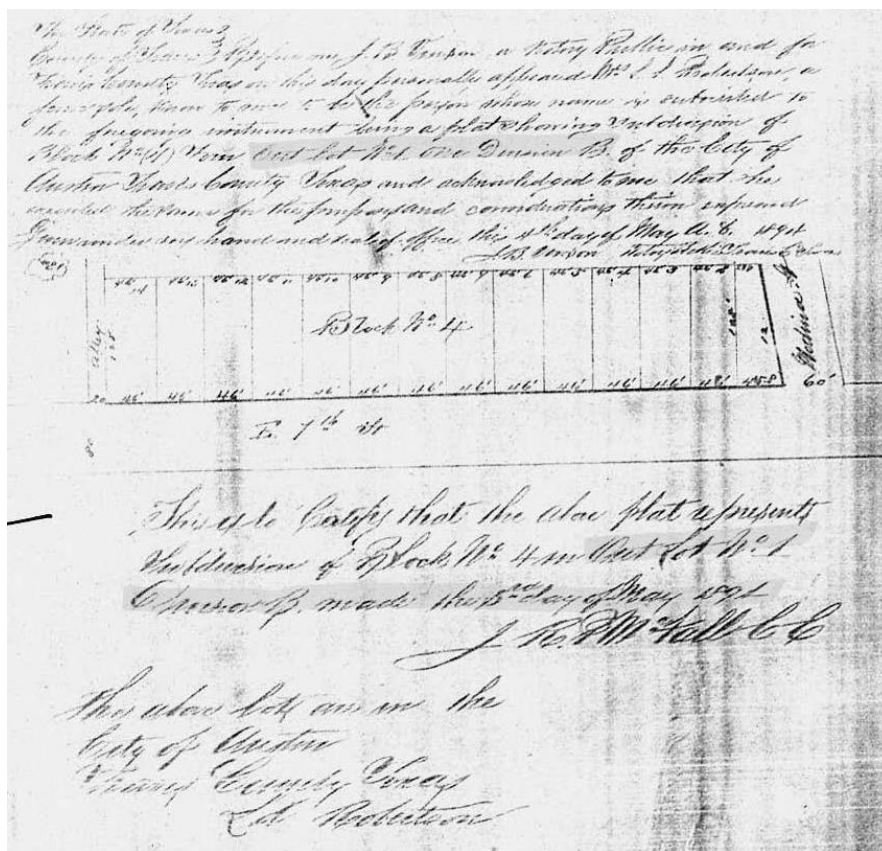 The State of Texas
County of Travis Before me, J. B. Vinson, a Notary Public in and for
Travis County Texas on this day personally appeared Mrs Robertson, a
feme sole, known to me to be the person whose name is subscribed to
the foregoing instrument being a plat showing subdivision of
Block No (4) Four Out lot No 1. one Division B. of the City of
Austin Travis County Texas and acknowledged to me that she
executed the same for the purposes and considerations therein expressed
Given under my hand and seal of office this 4th day of May A. D. 1894
J. B. Vinson Notary Public Travis Co
Alley
Block No. 4
Medina St
20 46' 46' 46' 46' 46' 46' 46' 46' 46' 46' 46' 46' 60'
80
E. 7th St
This is to Certify that the above plat represents
Subdivision of Block No. 4 in Out Lot No. 1
Division B. made the 3rd day of May 1894
J R P McFall C C
The above lots are in the
City of Austin
Travis County Texas
Robertson